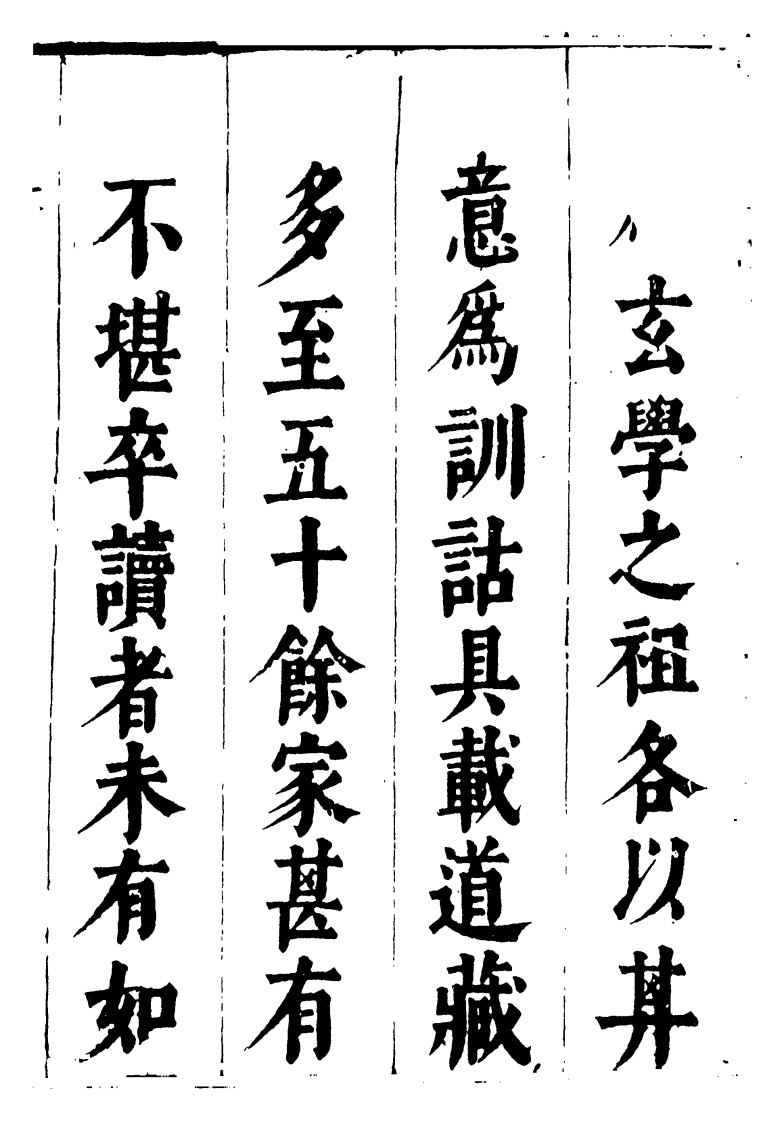 玄學之祖各以其
意爲訓詁具載道藏
多至五十餘家甚有
不堪卒讀者未有如